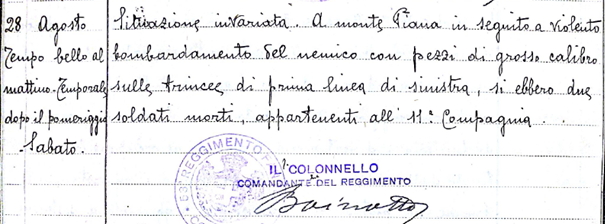 28 Agosto
Tempo bello al
mattino. Temporale
dopo il pomeriggio
Sabato.
Situazione invariata. A monte Piana in seguito a violento
bombardamento del nemico con pezzi di grosso calibro
sulle trincee di prima linea di sinistra, si ebbero due
soldati morti, appartenenti all' 11ª Compagnia.
REGGIMENTO
IL COLONNELLO
COMANDANTE DEL REGGIMENTO